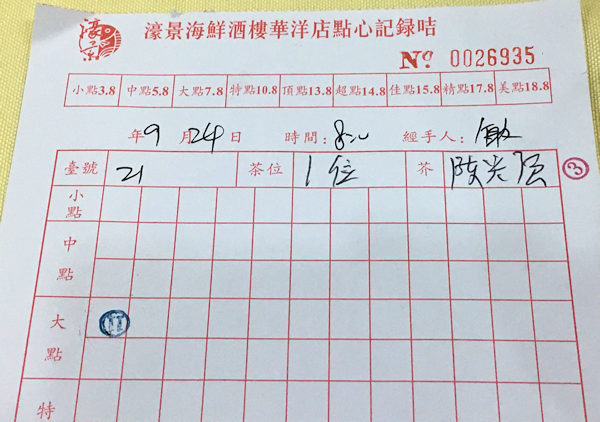 濠景
濠景海鮮酒樓華洋店點心記録咭
No. 0026935
小點3.8 中點5.8 大點7.8 特點10.8 頂點13.8 超點14.8 佳點15.8 精點17.8 美點18.8
年9月24日 時間: 經手人:
臺號 21 茶位 1位 芥 陈光强 ③
小點
中點
大點
特